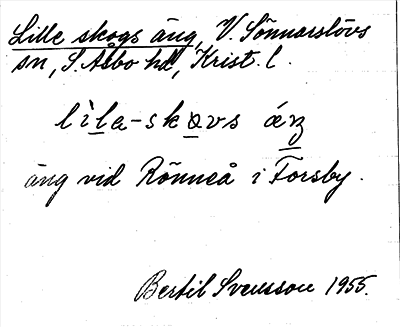 Lille skogs äng, V. Sönnarslövs
sn, S. Åsbo hd, Krist. l.
lìla-skǫvs ǽŋ
äng vid Rönneå i Forsby.
Bertil Svensson 1955.